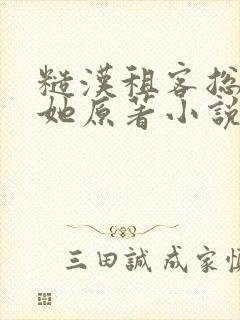 糙漢租客總
她原著小說
三田誠 成家慎